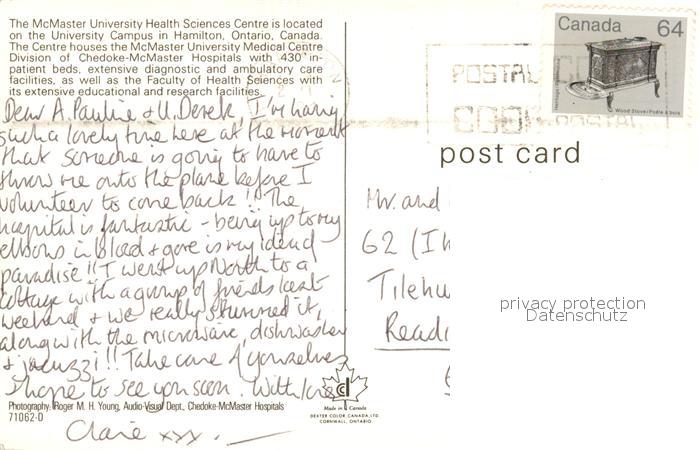 The McMaster University Health Sciences Centre is located
on the University Campus in Hamilton, Ontario, Canada.
The Centre houses the McMaster University Medical Centre
Division of Chedoke-McMaster Hospitals with 430 in-
patient beds, extensive diagnostic and ambulatory care
facilities, as well as the Faculty of Health Sciences with
its extensive educational and research facilities.
Dear A. Pauline & U. Derek, I'm having
such a lovely time here at the moment
that someone is going to have to
throw me onto the plane before I
volunteer to come back!! The
hospital is fantastic - being up to my
elbows in blood & gore is my ideal
paradise!! I went up North to a
cottage with a group of friends last
weekend & we really slummed it,
along with the microwave, dishwasher
& jacuzzi!! Take care of yourselves
& hope to see you soon. With love
Claire xxx.
Photography: Roger M. H. Young, Audio-Visual Dept., Chedoke-McMaster Hospitals
71062-D
Made in Canada
DEXTER COLOR CANADA, LTD.
CORNWALL, ONTARIO
Canada 64
Wood Stove / Poêle à bois
POSTAL CO
COD POSTAL
post card
Mr. and
62 (I
Tilehu
Readi
privacy protection
Datenschutz